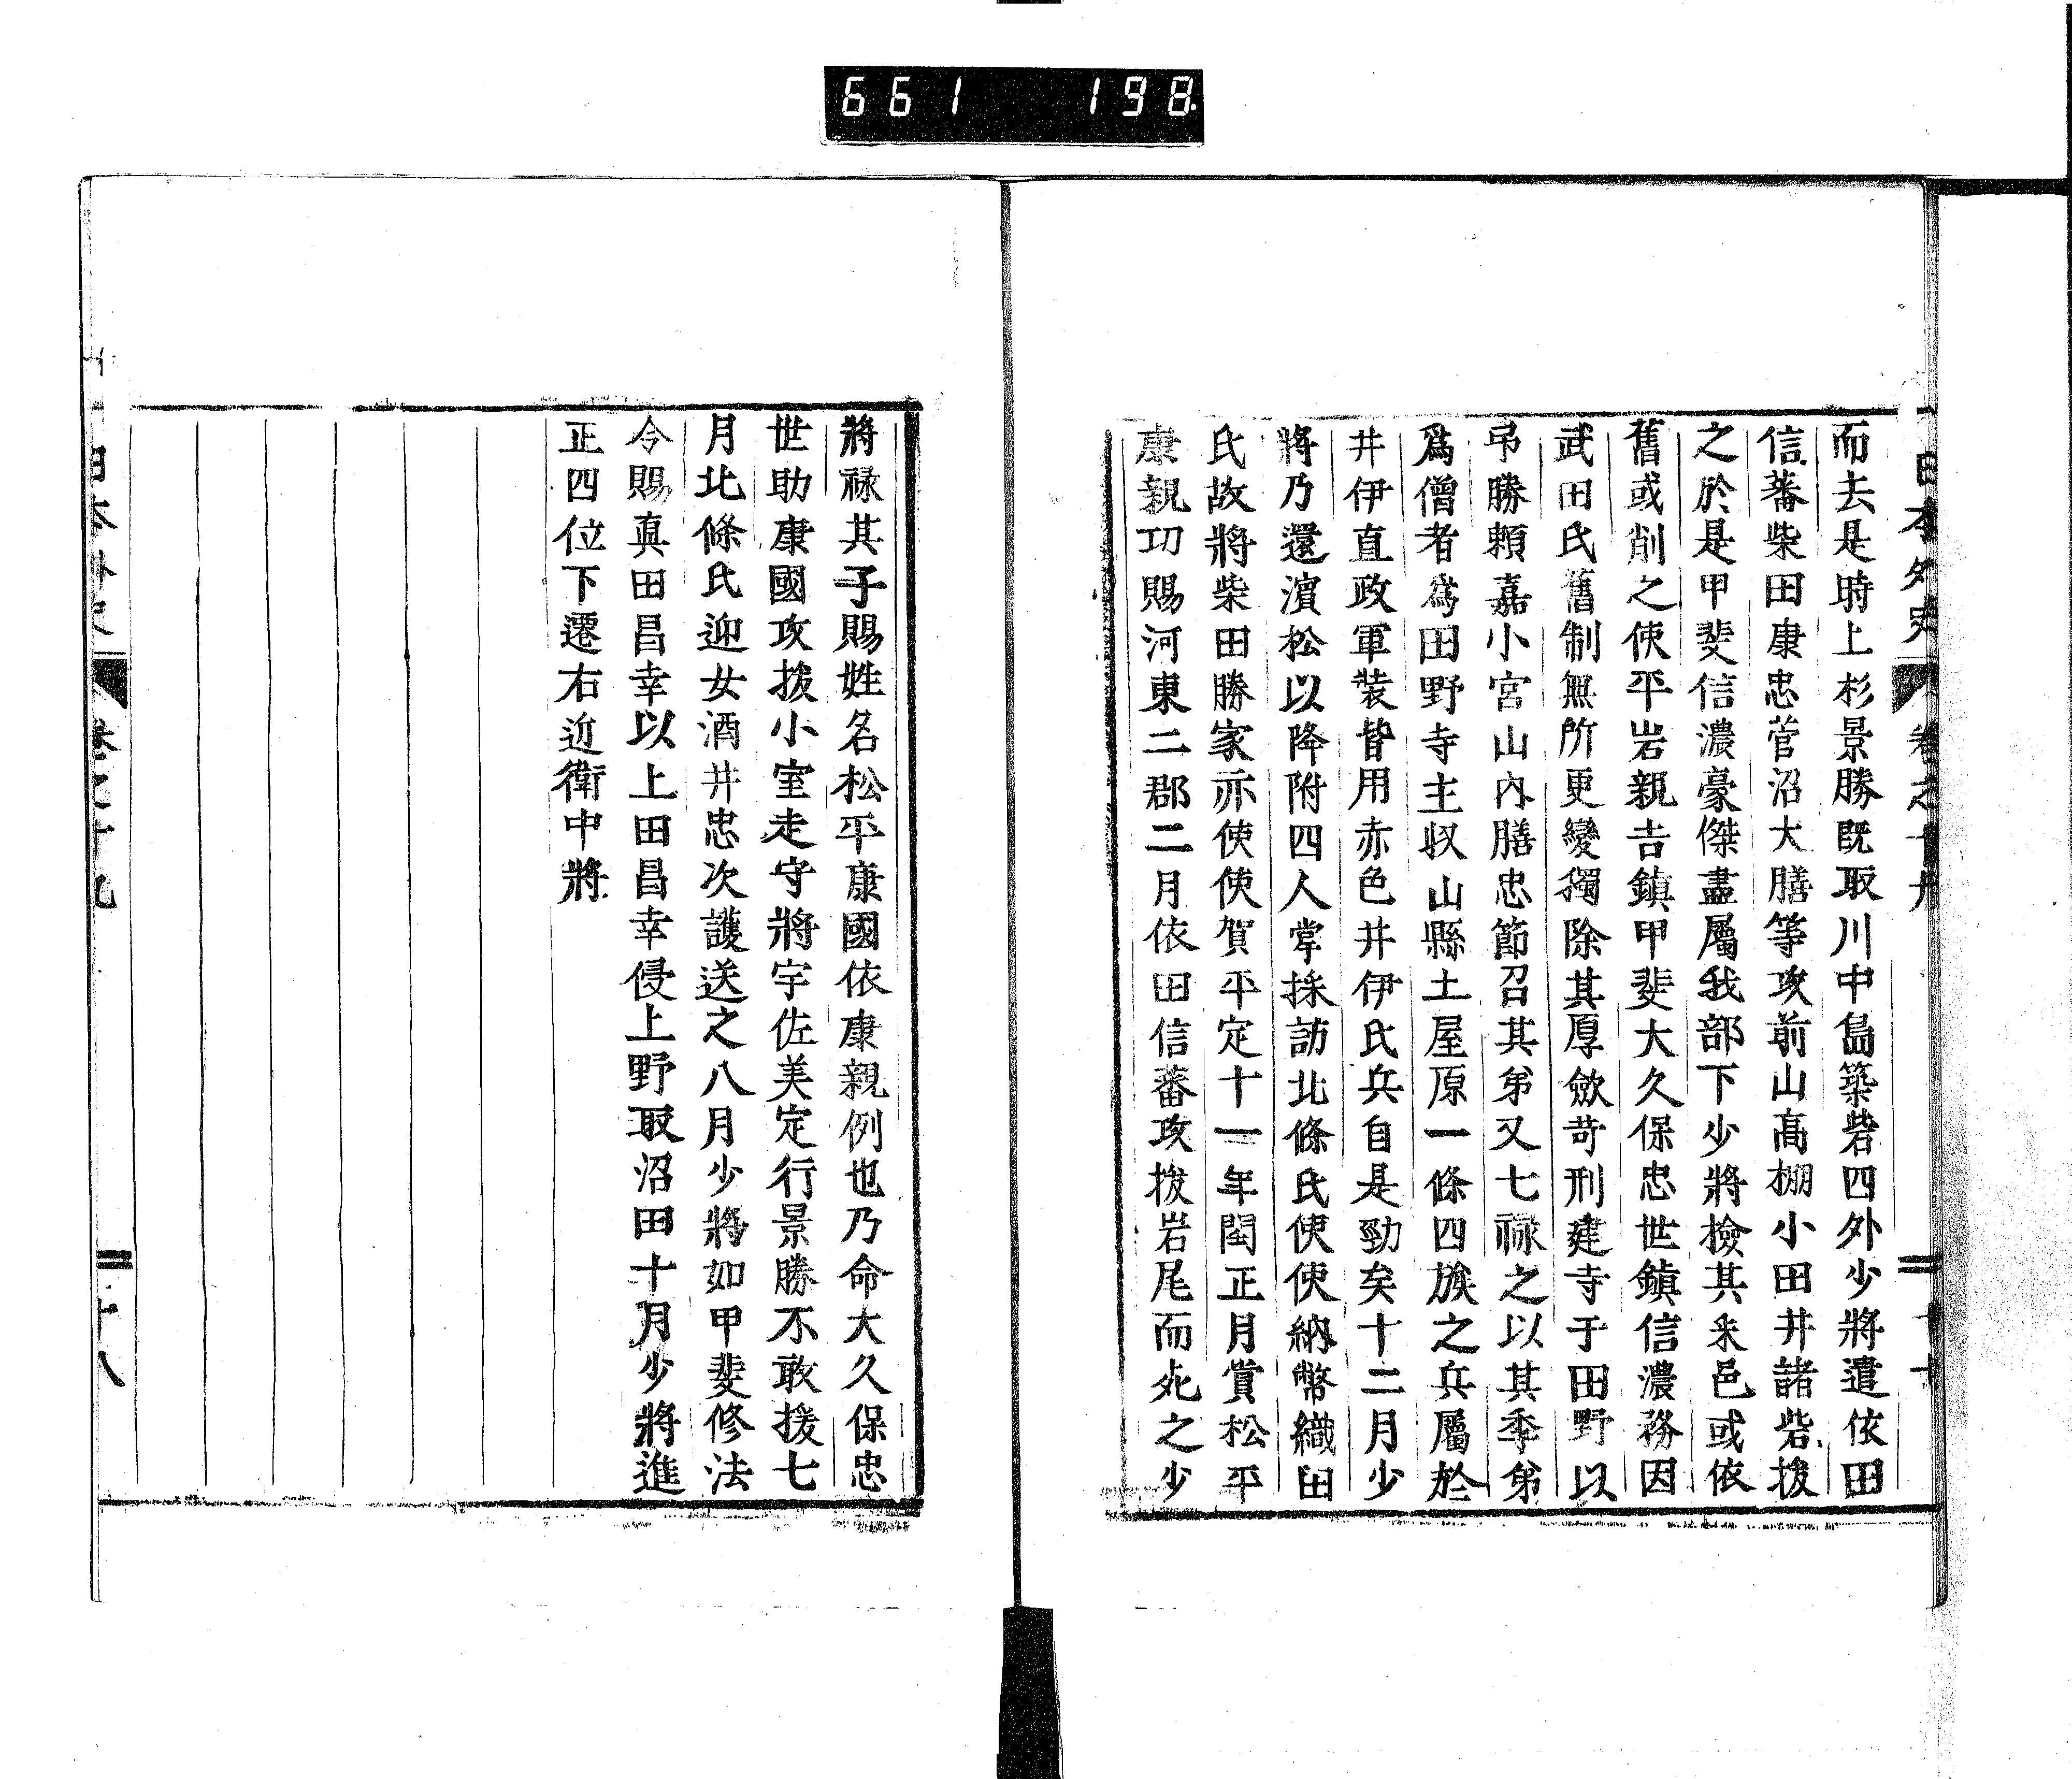 661 198
日本外史 卷之十九
而去是時上杉景勝既取川中島築砦四外少將遣依田
信蕃柴田康忠菅沼大膳等攻前山高棚小田井諸砦拔
之於是甲斐信濃豪傑盡屬我部下少將撿其釆邑或依
舊或削之使平岩親吉鎮甲斐大久保忠世鎮信濃務因
武田氏舊制無所更變獨除其厚斂苛刑建寺于田野以
弔勝賴嘉小宮山內膳忠節召其弟又七祿之以其季弟
爲僧者爲田野寺主収山縣土屋原一條四族之兵屬於
井伊直政軍裝皆用赤色井伊氏兵自是勁矣十二月少
將乃還濱松以降附四人掌採訪北條氏使使納幣織田
氏故將柴田勝家亦使使賀平定十一年閏正月賞松平
康親功賜河東二郡二月依田信蕃攻拔岩尾而死之少
將祿其子賜姓名松平康國依康親例也乃命大久保忠
世助康國攻拔小室走守將宇佐美定行景勝不敢援七
月北條氏迎女酒井忠次護送之八月少將如甲斐修法
令賜真田昌幸以上田昌幸侵上野取沼田十月少將進
正四位下遷右近衛中將
日本外史 卷之十九 十八